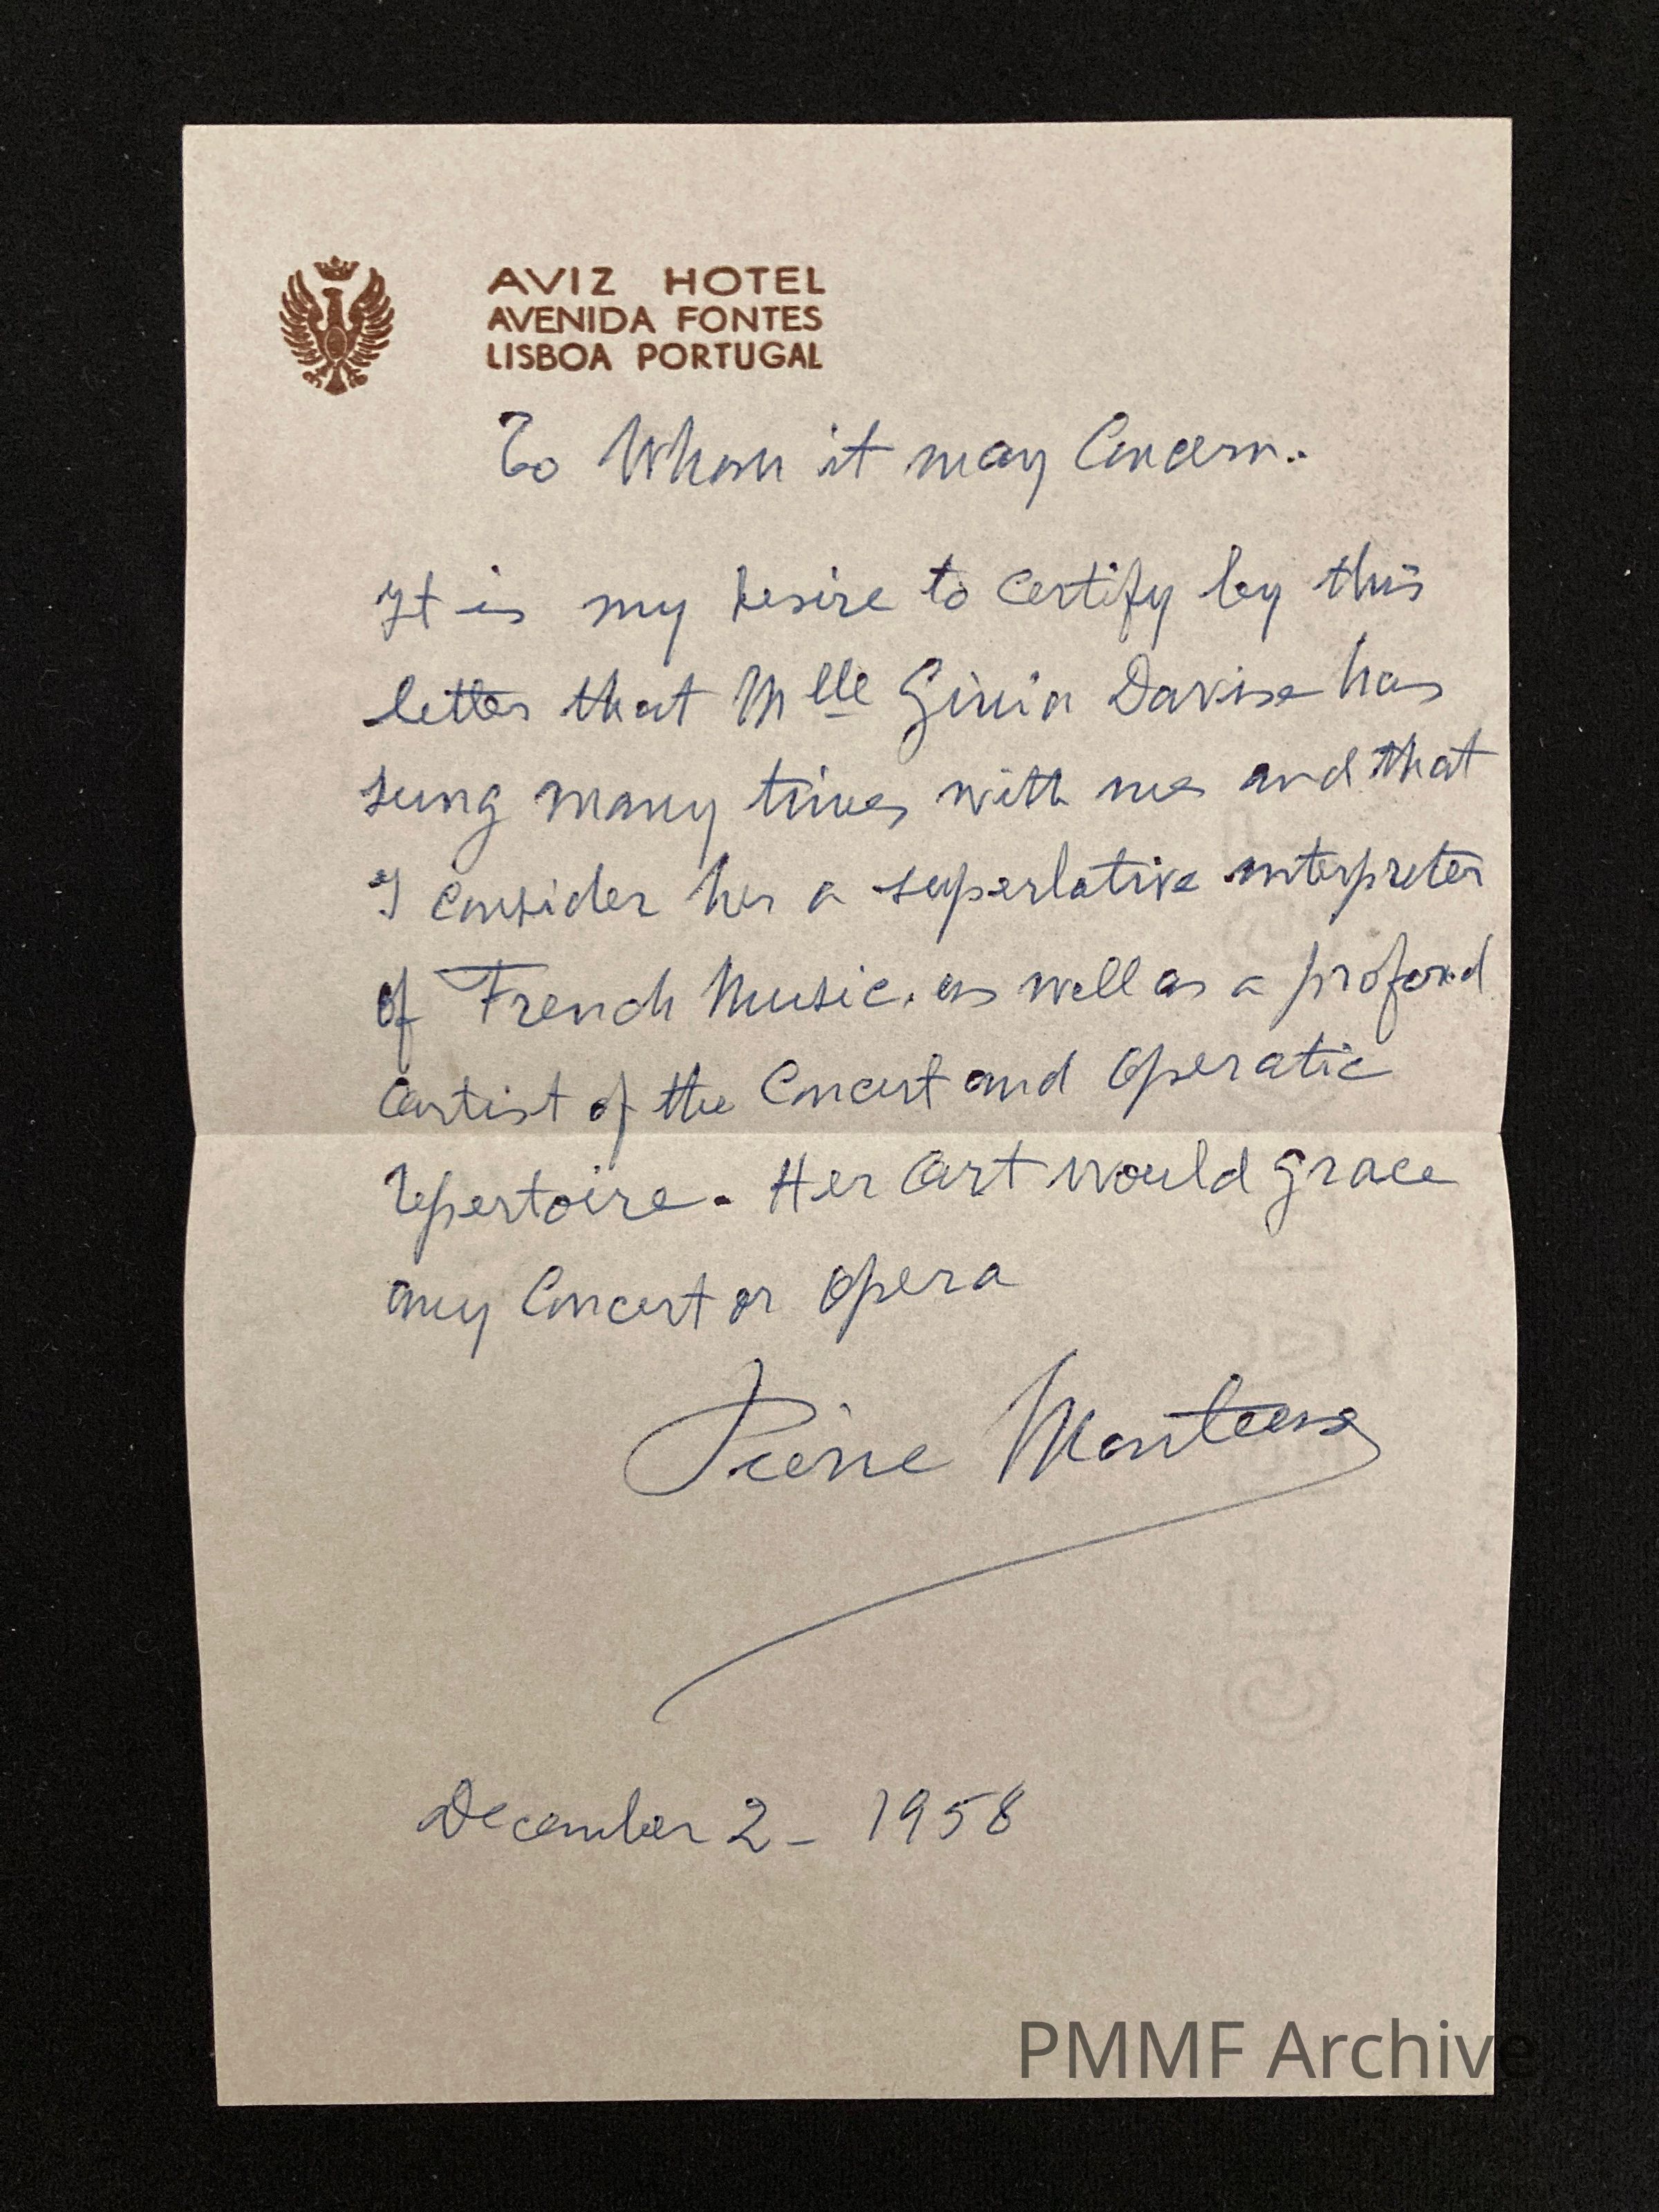 AVIZ HOTEL
AVENIDA FONTES
LISBOA PORTUGAL
To Whom it may Concern.
It is my desire to certify by this
letter that Mlle Ginia Davis has
sung many times with me and that
I consider her a superlative interpreter
of French Music, as well as a profond
artist of the Concert and Operatic
repertoire. Her art would grace
any Concert or Opera
Pierre Monteux
December 2 - 1958
PMMF Archive